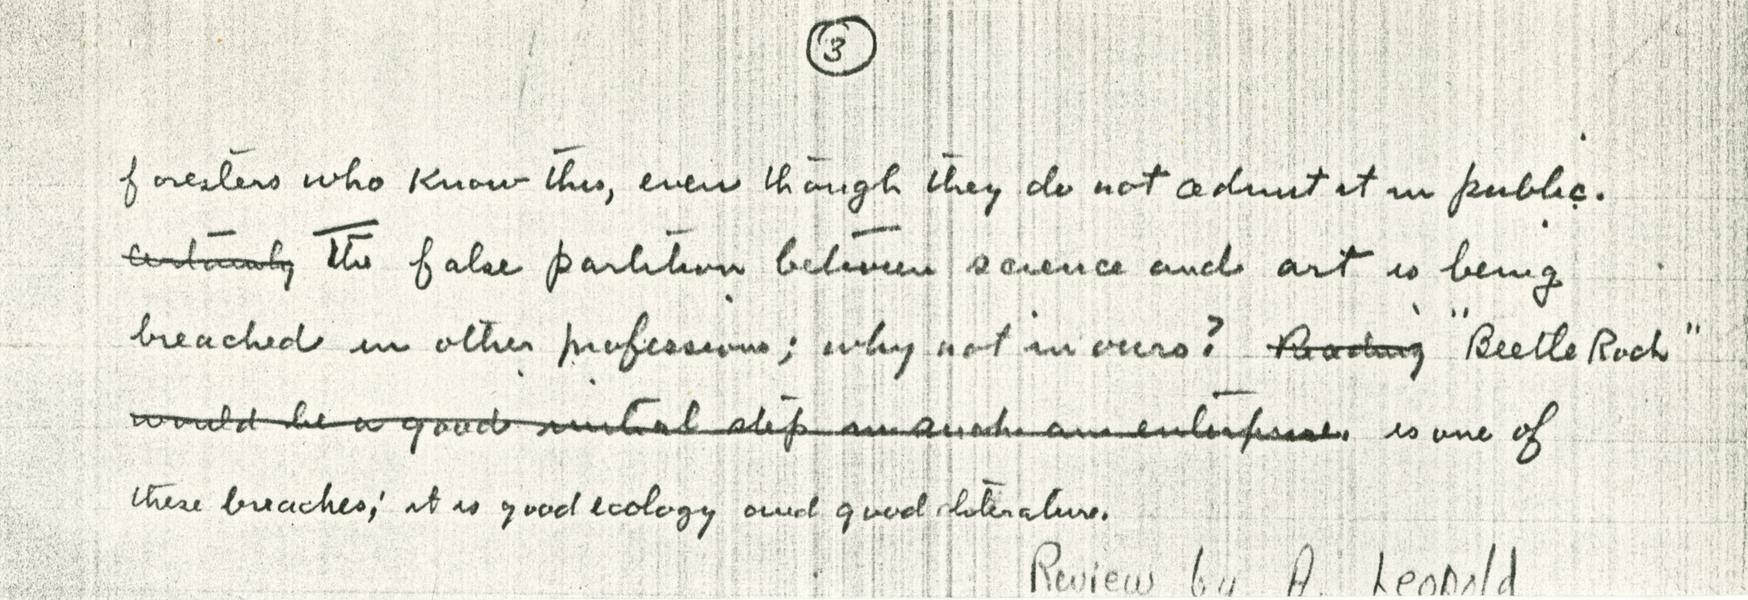 3
foresters who know this, even though they do not admit it in public.
Certainly The false partition between science and art is being
breached in other professions; why not in ours? Reading "Beetle Rock"
would be a good initial step in such an enterprise. is one of
these breaches; it is good ecology and good literature.
Review by A. Leopold